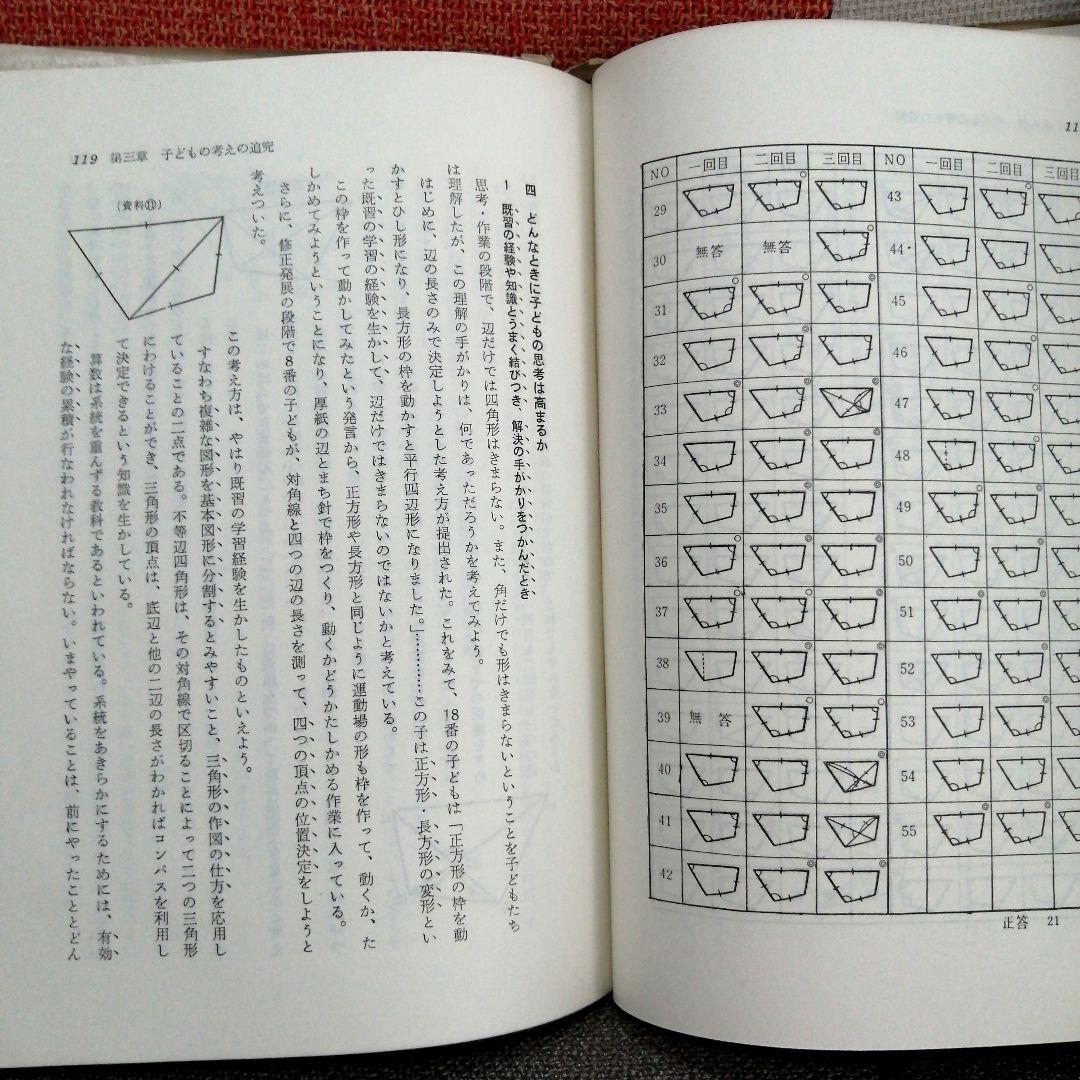 11
NO 一回目 二回目 三回目 NO 一回目 二回目 三回
29 43
30 無答 無答 44
31 45
32 46
33 47
34 48
35 49
36 50
37 51
38 52
39 無答 53
40 54
41 55
42
正答 21
119 第三章 子どもの考えの追究
四 どんなときに子どもの思考は高まるか
1 既習の経験や知識とうまく結びつき、解決の手がかりをつかんだとき
思考・作業の段階で、辺だけでは四角形はきまらない。また、角だけでも形はきまらないということを子どもたち
は理解したが、この理解の手がかりは、何であっただろうかを考えてみよう。
はじめに、辺の長さのみで決定しようとした考え方が提出された。これをみて、18番の子どもは「正方形の枠を動
かすとひし形になり、長方形の枠を動かすと平行四辺形になりました。」…………この子は正方形・長方形の変形とい
った既習の学習の経験を生かして、辺だけではきまらないのではないかと考えている。
この枠を作って動かしてみたという発言から、正方形や長方形と同じように運動場の形も枠を作って、動くか、た
しかめてみようということになり、厚紙の辺とまち針で枠をつくり、動くかどうかたしかめる作業に入っている。
さらに、修正発展の段階で8番の子どもが、対角線と四つの辺の長さを測って、四つの頂点の位置決定をしようと
考えついた。
(資料⑪)
この考え方は、やはり既習の学習経験を生かしたものといえよう。
すなわち複雑な図形を基本図形に分割するとみやすいこと、三角形の作図の仕方を応用し
ていることの二点である。不等辺四角形は、その対角線で区切ることによって二つの三角形
にわけることができ、三角形の頂点は、底辺と他の二辺の長さがわかればコンパスを利用し
て決定できるという知識を生かしている。
算数は系統を重んずる教科であるといわれている。系統をあきらかにするためには、有効
な経験の累積が行なわれなければならない。いまやっていることは、前にやったこととどん